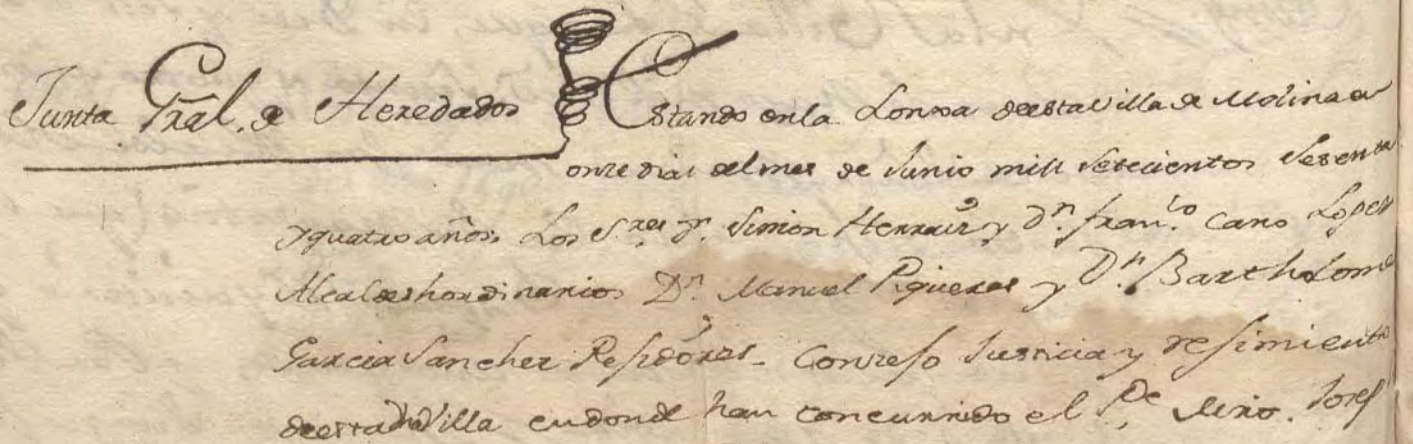 Junta Gräl. de Heredados Estando en la Lonxa de esta Villa de Molina a
onze dias del mes de Junio mill setecientos Setenta
y quatro años, Los S.res D.n Simon Herraiz y D.n fran.co Cano Lopez
Alcaldes hordinarios D.n Manuel Piqueras y D.n Bartholome
Garcia Sanchez Rexidóres Conzejo Justicia y reximiento
de esta dha Villa en donde han concurrido el P.e Mrõ. Josef